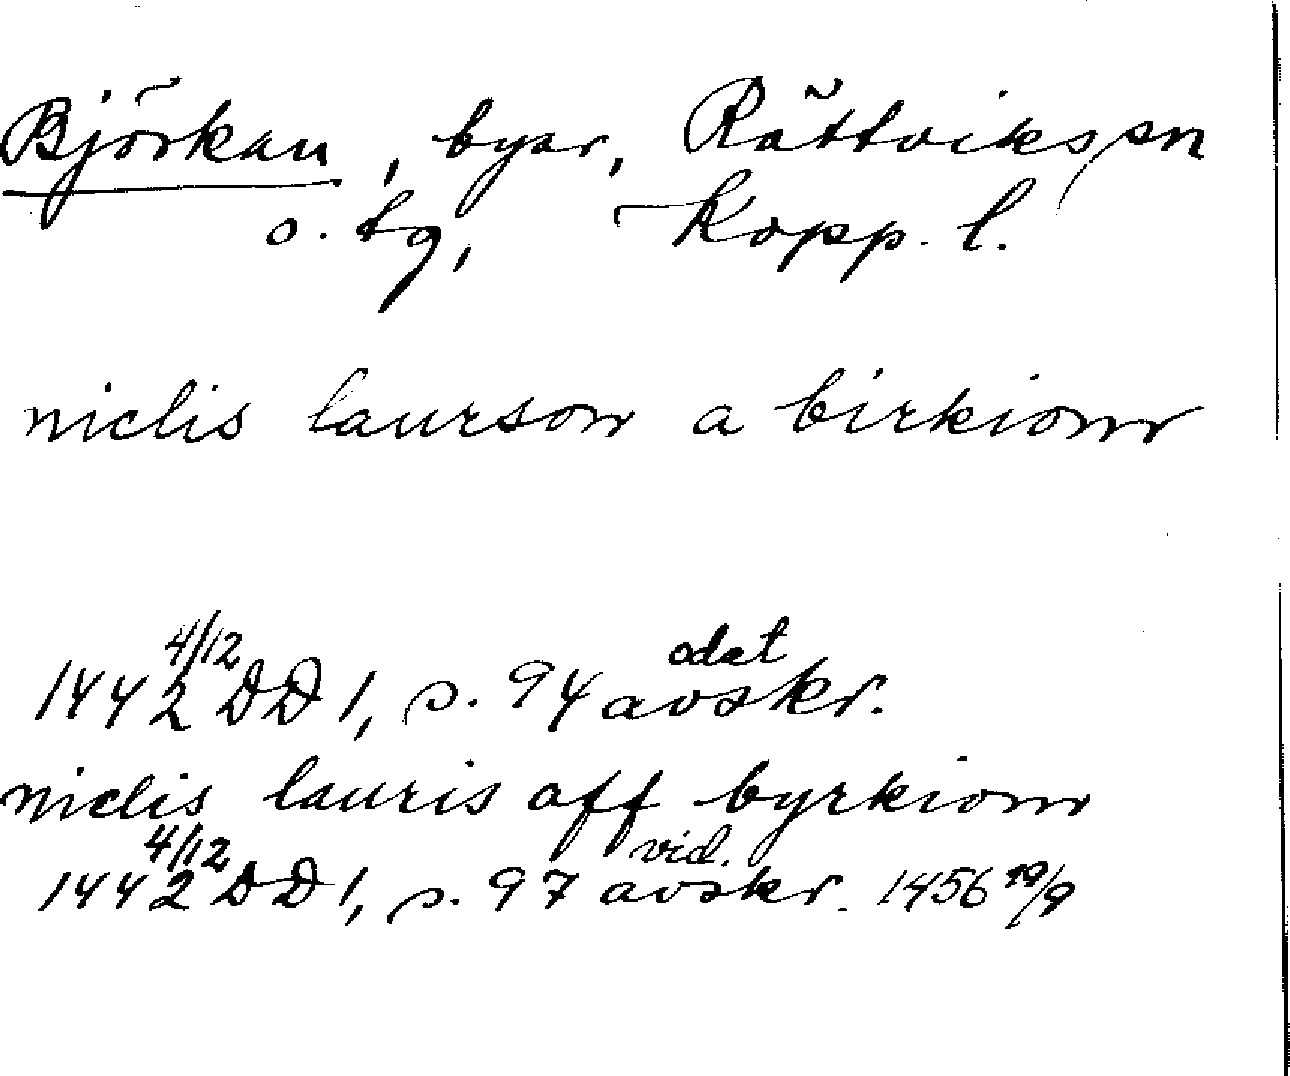 Björkan, byar, Rättviks sn
o. tg, Kopp. l.
niclis laurson a birkiom
1442 4/12 DD 1, s. 94 odat avskr.
niclis lauris aff byrkiom
1442 4/12 DD 1, s. 97 vid. avskr. 1456 19/9